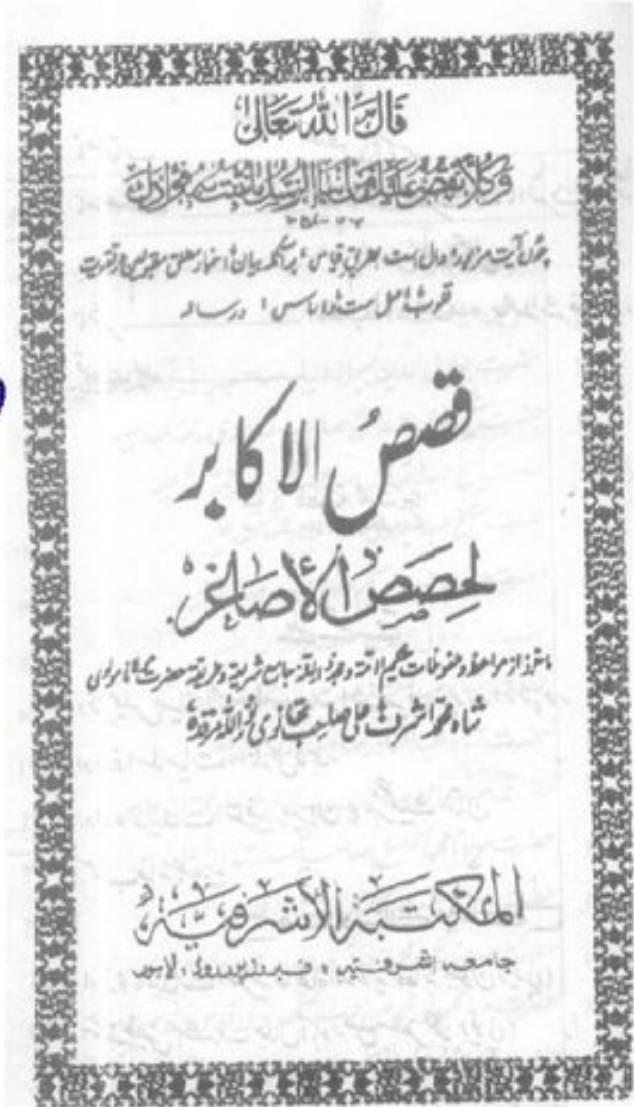 قَالَ اللهُ تَعَالٰی
وَكُلًّا نَقُصُّ عَلَيْكَ مِنْ اَنْبَاءِ الرُّسُلِ مَا نُثَبِّتُ بِهٖ فُؤَادَكَ
چوں آیت مزبورہ دال است بطریق قیاس
است در رسالہ
قصصُ الاکابر
لحصص الاصاغر
ماخوذ از مواعظ و ملفوظات حکیم الامۃ و مجدد الملۃ جامع شریعۃ و طریقۃ حضرت مولانا مولوی
شاہ محمد اشرف علی صاحب تھانوی نور اللہ مرقدہٗ
المکتبۃ الاشرفیۃ
جامعہ اشرفیہ ، فیروز پور روڈ ، لاہور